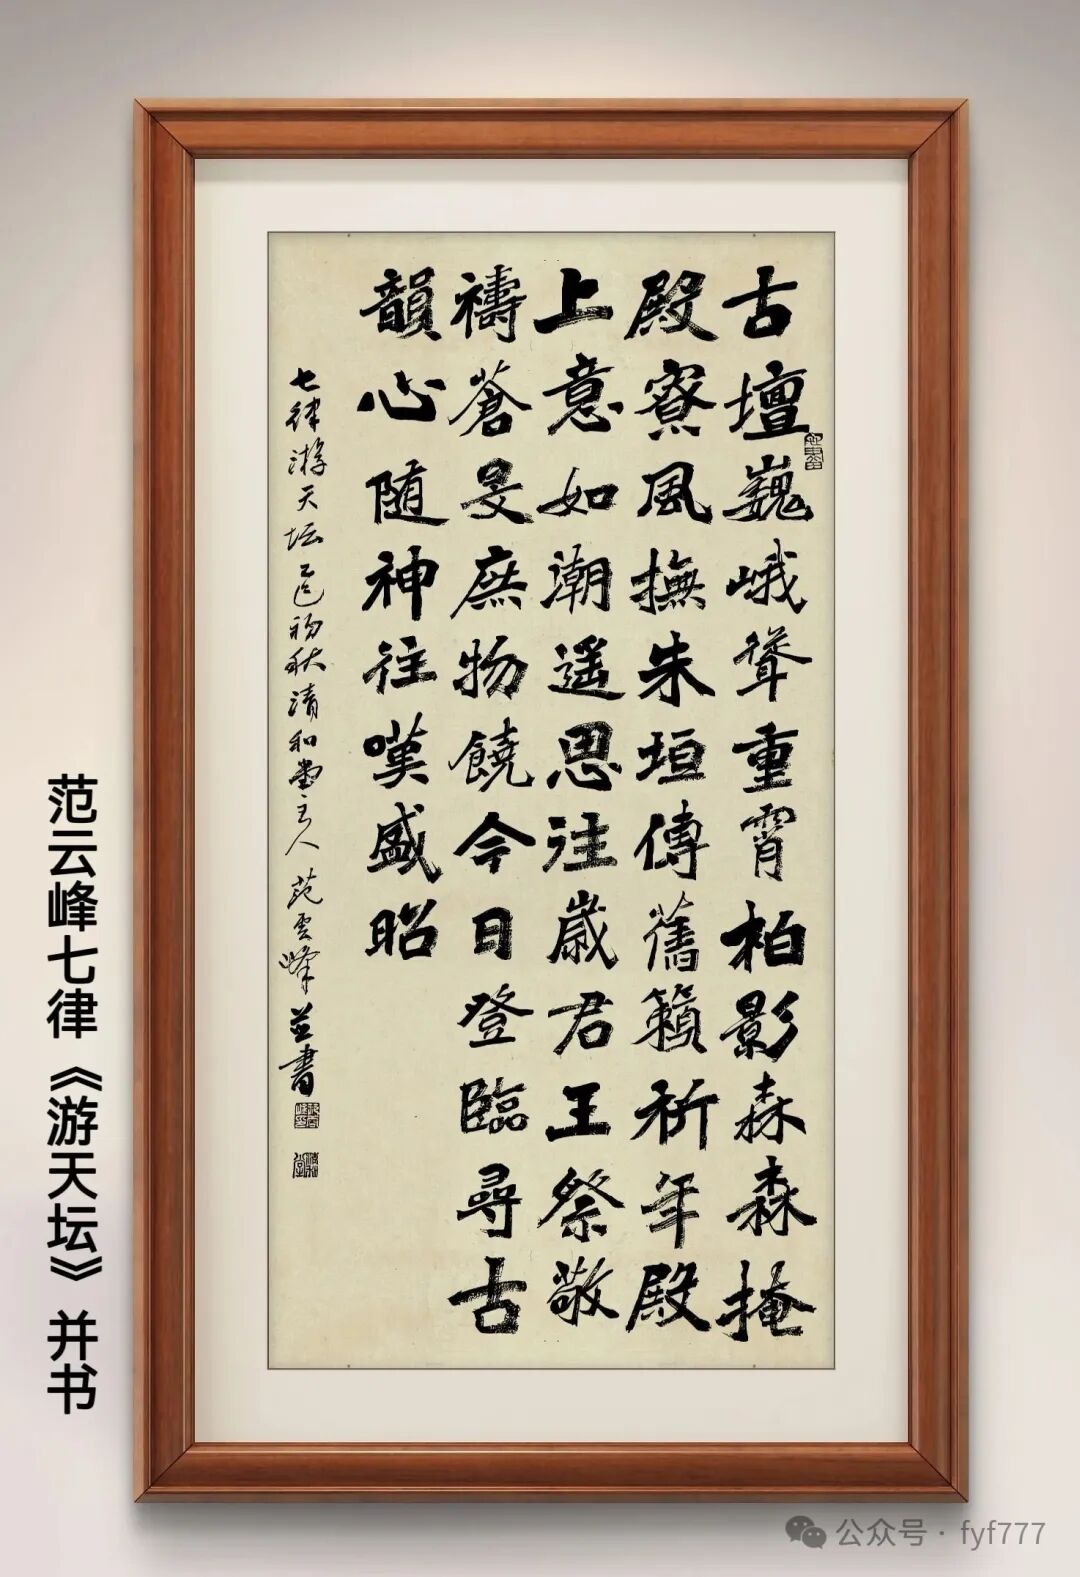 古壇巍峨聳重霄柏影森森掩
殿寮風撫朱垣傳舊籟祈年殿
上意如潮遥思往歲君王祭敬
禱蒼旻庶物饒今日登臨尋古
韻心随神往嘆盛昭
七律游天坛乙巳初秋清和堂主人范雲峰並書
范云峰七律《游天坛》并书
公众号·fyf777